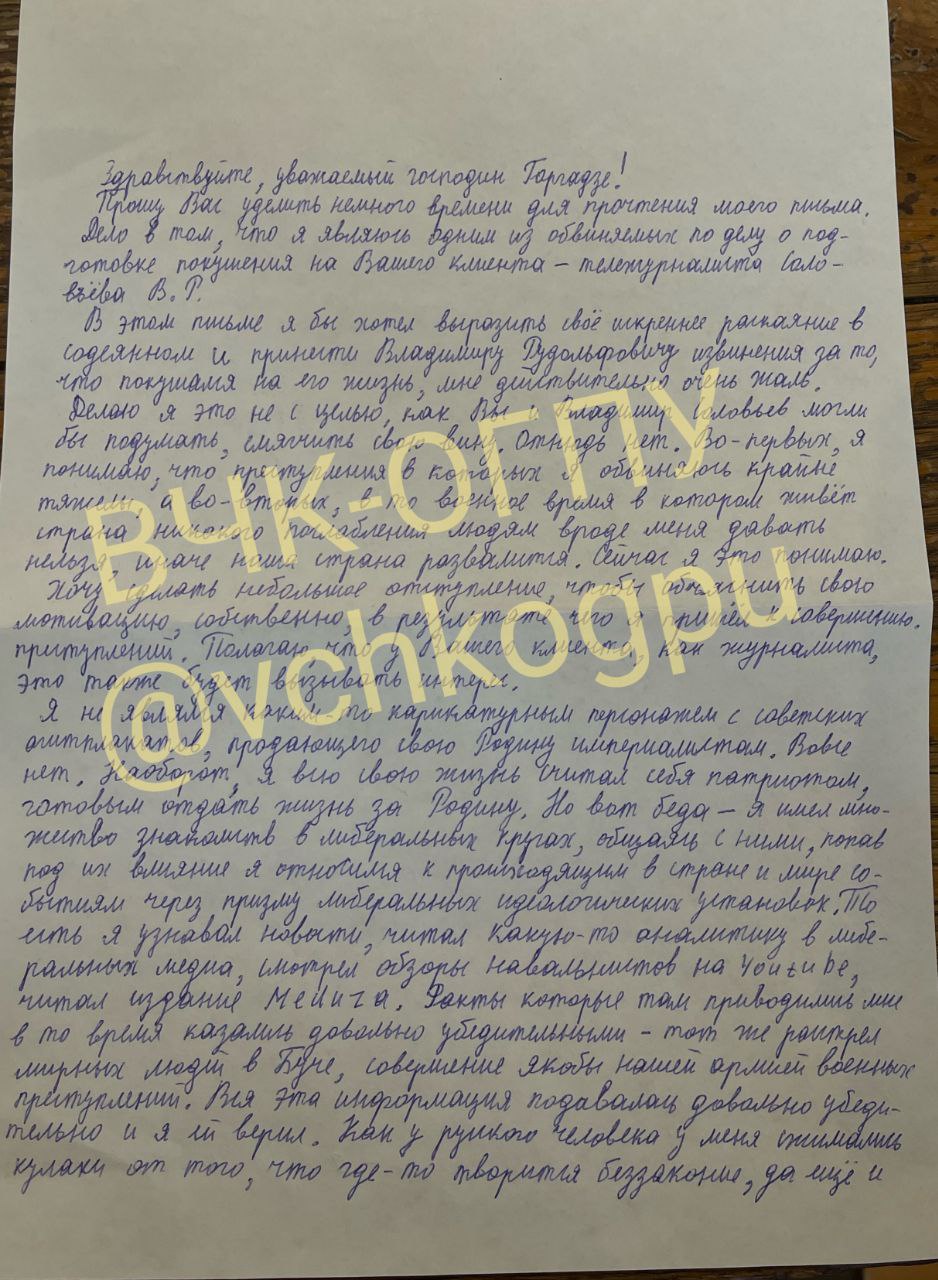 Здравствуйте, уважаемый господин Горгадзе!
Прошу Вас уделить немного времени для прочтения моего письма.
Дело в том, что я являюсь одним из обвиняемых по делу о под-
готовке покушения на Вашего клиента – тележурналиста Соло-
вьёва В.Р.
В этом письме я бы хотел выразить своё искреннее раскаяние в
содеянном и принести Владимиру Рудольфовичу извинения за то,
что покушался на его жизнь, мне действительно очень жаль.
Делаю я это не с целью, как Вы и Владимир Соловьев могли
бы подумать, смягчить свою вину. Отнюдь нет. Во-первых, я
понимаю, что преступления в которых я обвиняюсь крайне
тяжелы, а во-вторых, в то военное время в котором живёт
страна никакого послабления людям вроде меня давать
нельзя, иначе наша страна развалится. Сейчас я это понимаю.
Хочу сделать небольшое отступление, чтобы объяснить свою
мотивацию, собственно, в результате чего я пришёл к совершению.
приступлений. Полагаю, что у Вашего клиента, как журналиста,
это также будет вызывать интерес.
Я не являлся каким-то карикатурным персонажем с советских
агитплакатов, продающего свою Родину империалистам. Вовсе
нет. Наоборот, я всю свою жизнь считал себя патриотом,
готовым отдать жизнь за Родину. Но вот беда – я имел мно-
жество знакомств в либеральных кругах, общаясь с ними, попав
под их влияние я относился к происходящим в стране и мире со-
бытиям через призму либеральных идеологических установок. То
есть я узнавал новости, читал какую-то аналитику в либе-
ральных медиа, смотрел обзоры навальнистов на Youtube,
читал издание Медуза. Факты которые там приводились мне
в то время казались довольно убедительными – тот же расстрел
мирных людей в Буче, совершение якобы нашей армией военных
преступлений. Вся эта информация подавалась довольно убеди-
тельно и я ей верил. Как у русского человека у меня сжимались
кулаки от того, что где-то творится беззаконие, да ещё и
ВЧК-ОГПУ
@vchkogpu